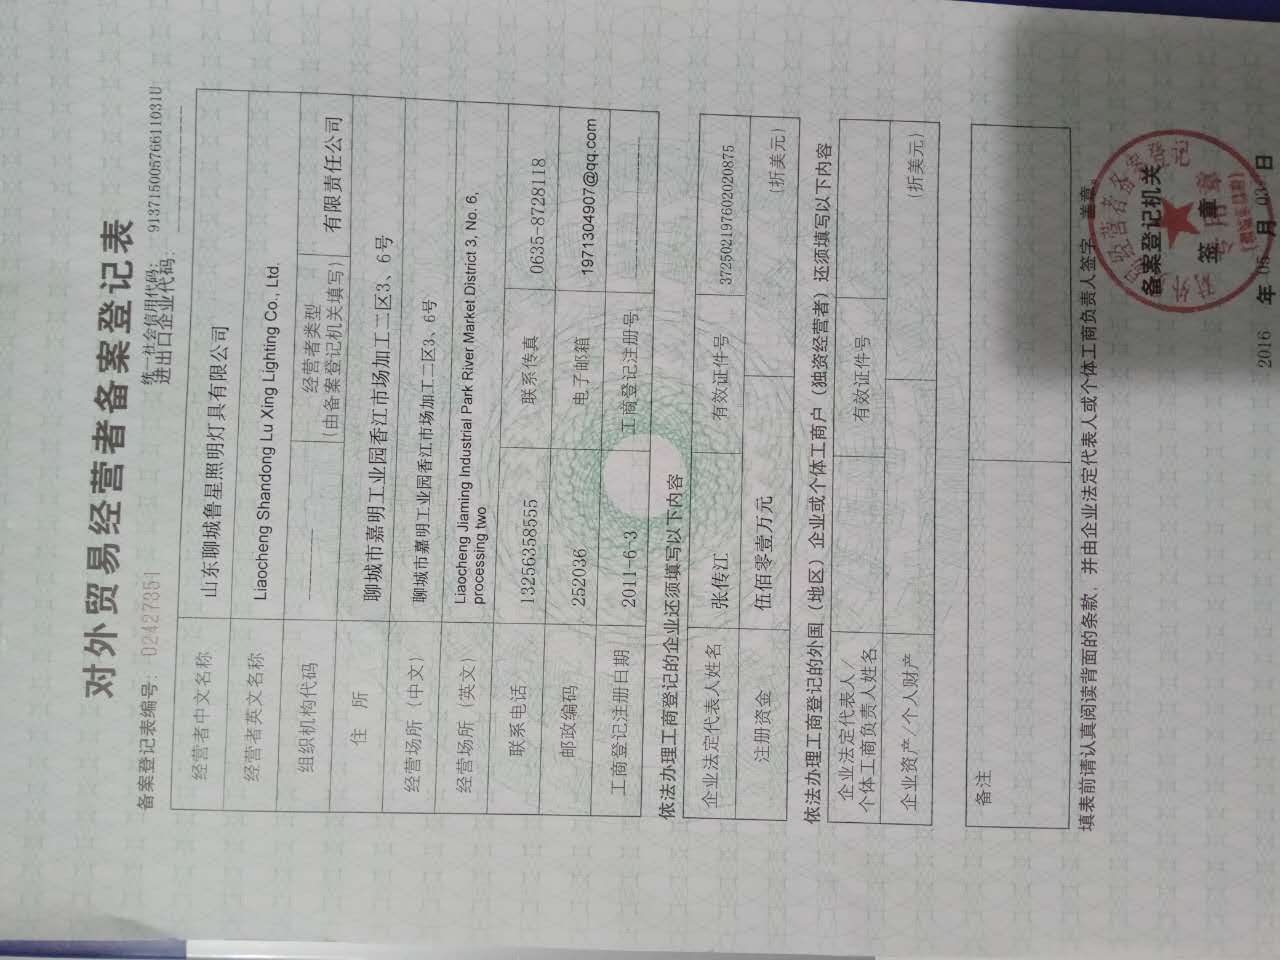 对外贸易经营者备案登记表
统一社会信用代码:
备案登记表编号: 02427351
进出口企业代码: 91371500576611031U
经营者中文名称 山东聊城鲁星照明灯具有限公司
经营者英文名称 Liaocheng Shandong Lu Xing Lighting Co., Ltd.
组织机构代码 ———— 经营者类型
(由备案登记机关填写) 有限责任公司
住 所 聊城市嘉明工业园香江市场加工二区3、6号
经营场所(中文) 聊城市嘉明工业园香江市场加工二区3、6号
经营场所(英文) Liaocheng Jiaming Industrial Park River Market District 3, No. 6,
processing two
联系电话 13256358555 联系传真 0635-8728118
邮政编码 252036 电子邮箱 1971304907@qq.com
工商登记注册日期 2011-6-3 工商登记注册号
依法办理工商登记的企业还须填写以下内容
企业法定代表人姓名 张传江 有效证件号 372502197602020875
注册资金 伍佰零壹万元 (折美元)
依法办理工商登记的外国(地区)企业或个体工商户(独资经营者)还须填写以下内容
企业法定代表人/
个体工商负责人姓名 有效证件号
企业资产/个人财产 (折美元)
备注
填表前请认真阅读背面的条款,并由企业法定代表人或个体工商负责人签字、盖章。
备案登记机关
签 章
2016 年 05 月 日